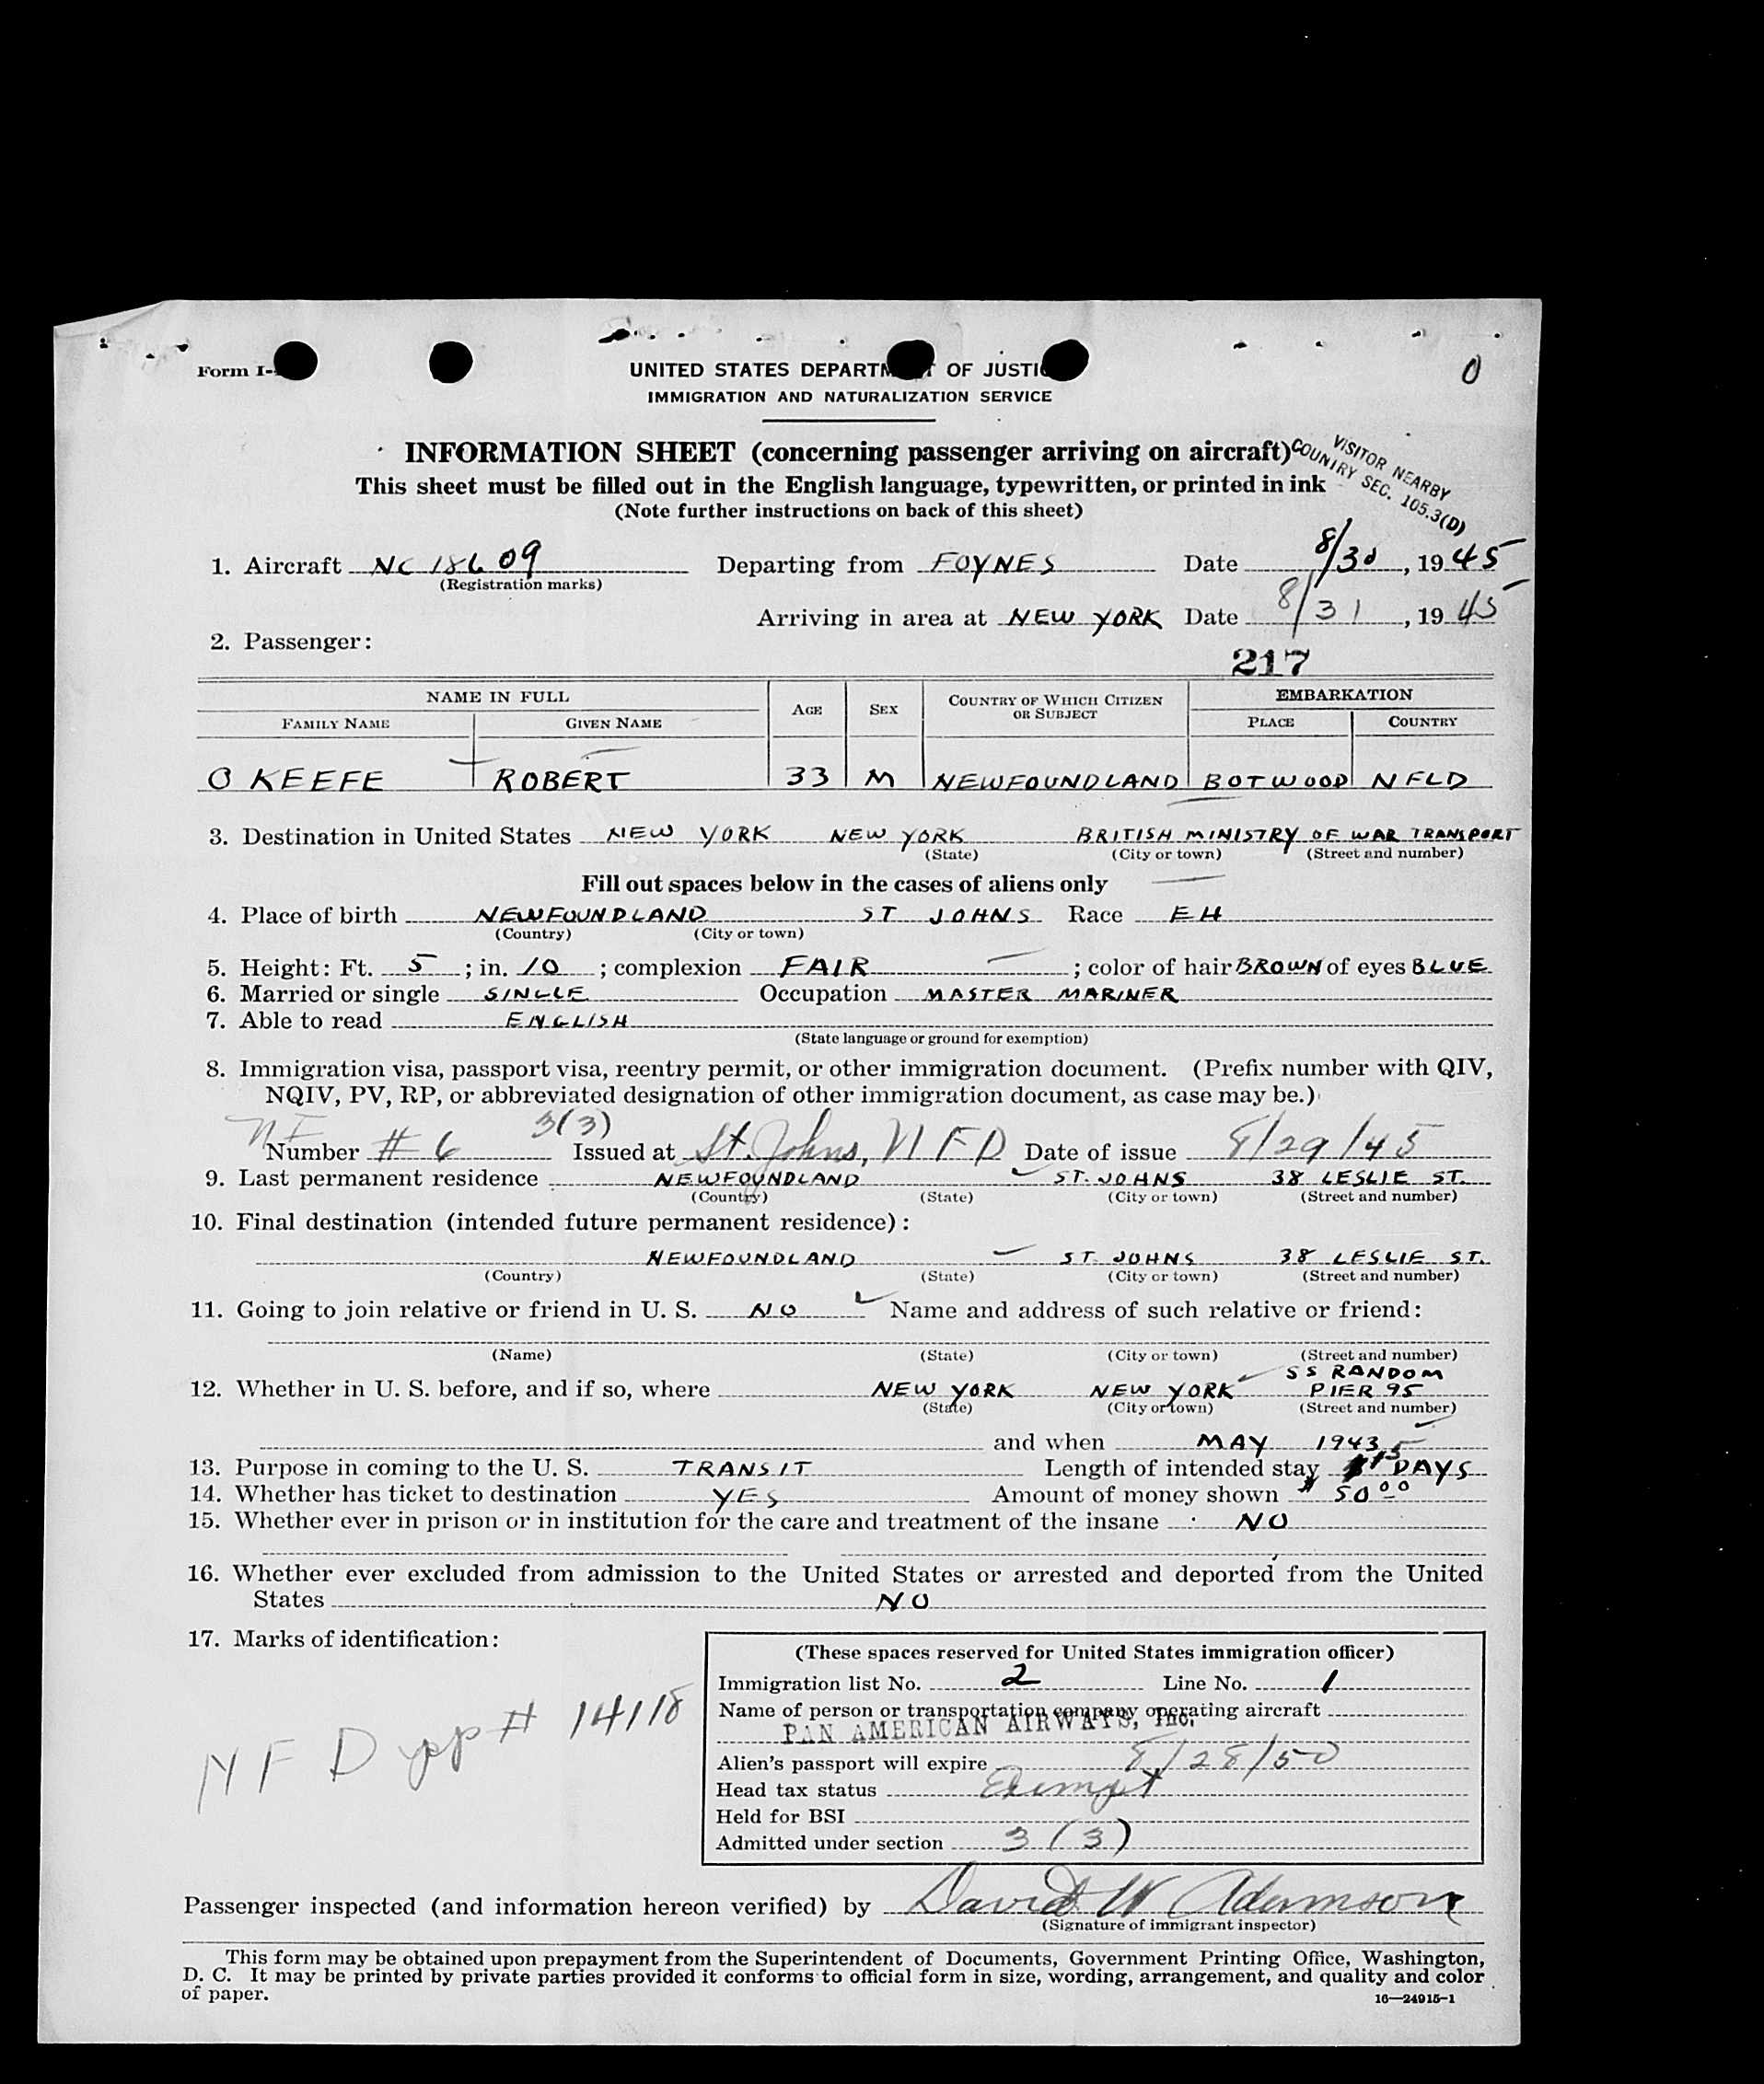 Form I-
UNITED STATES DEPARTMENT OF JUSTICE
IMMIGRATION AND NATURALIZATION SERVICE
0
INFORMATION SHEET (concerning passenger arriving on aircraft)
VISITOR NEARBY
COUNTRY SEC. 105.3(D)
This sheet must be filled out in the English language, typewritten, or printed in ink
(Note further instructions on back of this sheet)
1. Aircraft NC 18609 Departing from FOYNES Date 8/30, 1945
(Registration marks)
Arriving in area at NEW YORK Date 8/31, 1945
2. Passenger:
217
NAME IN FULL AGE SEX COUNTRY OF WHICH CITIZEN OR SUBJECT EMBARKATION
FAMILY NAME GIVEN NAME PLACE COUNTRY
O KEEFE ROBERT 33 M NEWFOUNDLAND BOTWOOD NFLD
3. Destination in United States NEW YORK NEW YORK BRITISH MINISTRY OF WAR TRANSPORT
(State) (City or town) (Street and number)
Fill out spaces below in the cases of aliens only
4. Place of birth NEWFOUNDLAND ST JOHNS Race EH
(Country) (City or town)
5. Height: Ft. 5; in. 10; complexion FAIR; color of hair BROWN of eyes BLUE
6. Married or single SINGLE Occupation MASTER MARINER
7. Able to read ENGLISH
(State language or ground for exemption)
8. Immigration visa, passport visa, reentry permit, or other immigration document. (Prefix number with QIV,
NQIV, PV, RP, or abbreviated designation of other immigration document, as case may be.)
NF 3(3)
Number #6 Issued at St. Johns, NFD Date of issue 8/29/45
9. Last permanent residence NEWFOUNDLAND ST. JOHNS 38 LESLIE ST.
(Country) (State) (City or town) (Street and number)
10. Final destination (intended future permanent residence):
NEWFOUNDLAND ST. JOHNS 38 LESLIE ST.
(Country) (State) (City or town) (Street and number)
11. Going to join relative or friend in U. S. NO Name and address of such relative or friend:
(Name) (State) (City or town) (Street and number)
SS RANDOM
12. Whether in U. S. before, and if so, where NEW YORK NEW YORK PIER 95
(State) (City or town) (Street and number)
and when MAY 1943
13. Purpose in coming to the U. S. TRANSIT Length of intended stay DAYS
14. Whether has ticket to destination YES Amount of money shown $ 50 00
15. Whether ever in prison or in institution for the care and treatment of the insane NO
16. Whether ever excluded from admission to the United States or arrested and deported from the United
States NO
17. Marks of identification:
NFD pp # 14118
(These spaces reserved for United States immigration officer)
Immigration list No. 2 Line No. 1
Name of person or transportation company operating aircraft
PAN AMERICAN AIRWAYS, INC.
Alien's passport will expire 8/28/50
Head tax status Exempt
Held for BSI
Admitted under section 3(3)
Passenger inspected (and information hereon verified) by David W Adamson
(Signature of immigrant inspector)
This form may be obtained upon prepayment from the Superintendent of Documents, Government Printing Office, Washington,
D. C. It may be printed by private parties provided it conforms to official form in size, wording, arrangement, and quality and color
of paper.
16—24915-1